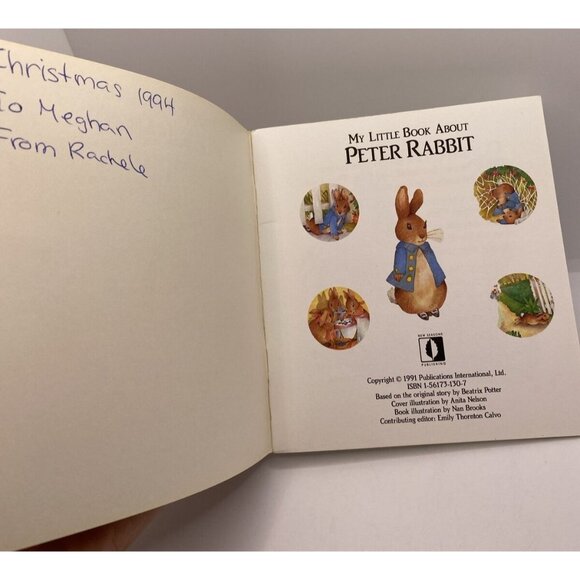 Christmas 1994
To Meghan
From Rachele
My Little Book About
Peter Rabbit
NEW SEASONS
PUBLISHING
Copyright © 1991 Publications International, Ltd.
ISBN 1-56173-130-7
Based on the original story by Beatrix Potter
Cover illustration by Anita Nelson
Book illustration by Nan Brooks
Contributing editor: Emily Thornton Calvo